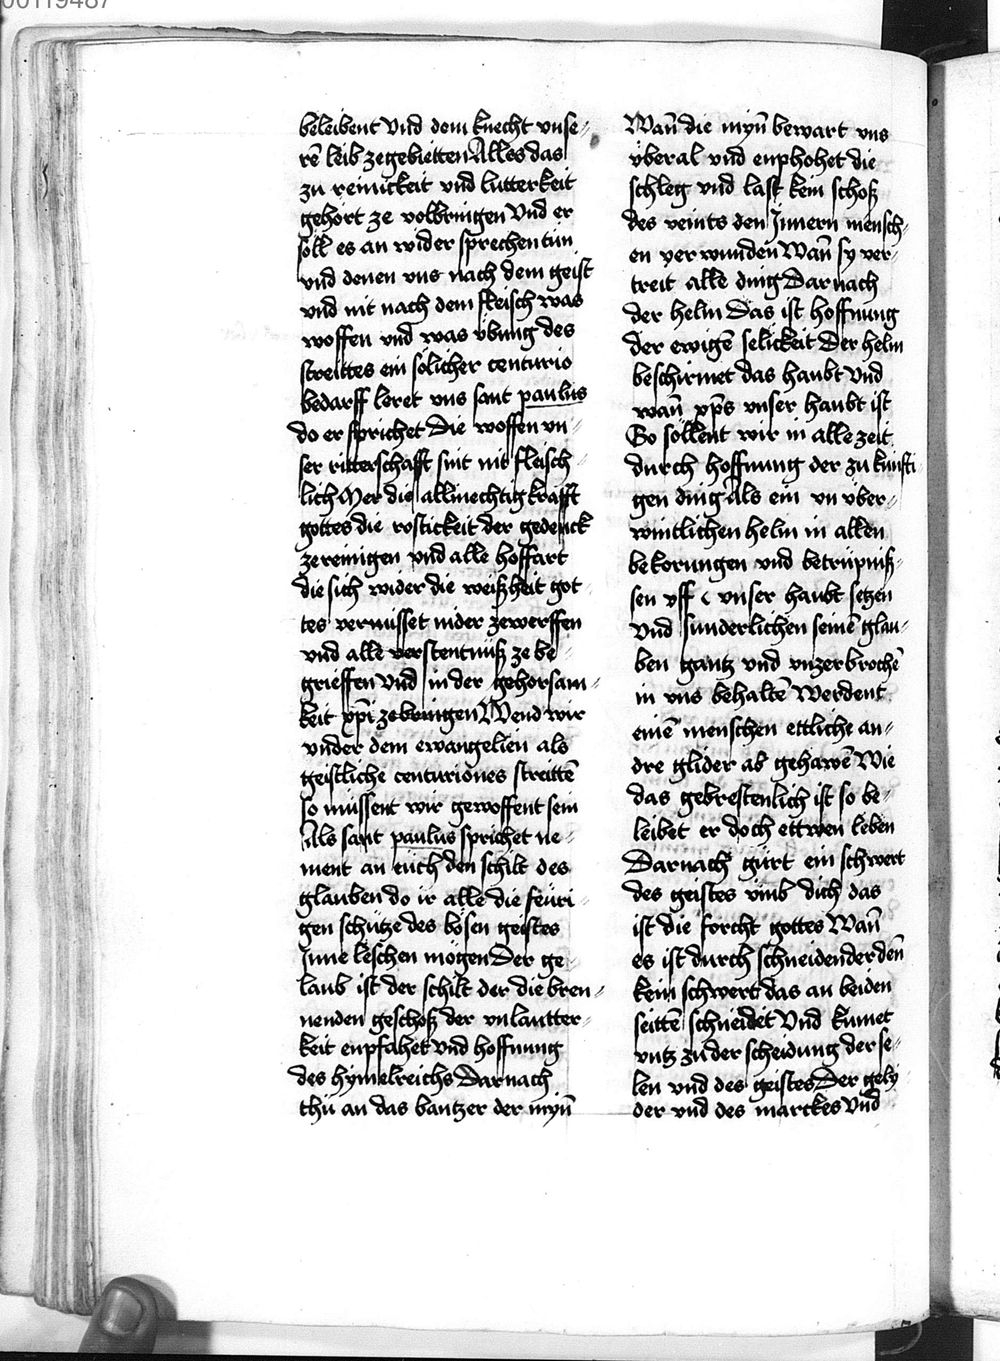 00119487
beleibent vnd dem knecht vnse-
rē leib ze gebietten Alles das
zu reinickeit vnd lutterkeit
gehört ze volbringen Vnd er
soll es an wider sprechen tun
vnd denen vns nach dem geist
vnd nit nach dem fleisch was
woffen vnd was übung des
streittes ein sölicher centurio
bedarff leret vns sant paulus
do er sprichet Die woffen vn-
ser ritterschafft sint nit fleisch-
lich Mer die allmechtig krafft
gottes die rostickeit der gedenck
ze reinigen vnd alle hoffart
die sich wider die weißheit got-
tes vermisset nider ze werffen
vnd alle verstentniß ze be-
grieffen Vnd in der gehorsam-
keit xp̄i ze bringen Wend wir
vnder dem ewangelien als
geistliche centuriones streittē
so müssent wir gewoffent sein
Als sant paulus sprichet ne-
ment an euch den schilt des
glauben do ir alle die feüri-
gen schütze des bösen geistes
Inne leschen mögen Der ge-
laub ist der schilt der die bren-
nenden geschoß der vnlautter-
keit enpfahet Vnd hoffnung
des hymelreichs Darnach
thů an das bantzer der myn̄
Wan̄ die myn̄ bewart vns
überal vnd enphohet die
schleg vnd last kein schoß
des veints den Innern mensch-
en verwunden Wan̄ sy ver-
treit alle ding Darnach
der helm Das ist hoffnung
der ewigē selickeit Der helm
beschirmet das haubt Vnd
wan̄ xp̄s vnser haubt ist
So söllent wir in alle zeit
durch hoffnung der zu künfti
gen ding Als ein vn über-
wintlichen helm in allen
bekorungen vnd betrüpniß-
sen vff vnser haubt setzen
Vnd sunderlichen seinē glau-
ben gantz vnd vnzerbrochē
in vns behaltē Werdent
einē menschen ettliche an-
dre glider ab gehawē Wie
das gebrestenlich ist so be-
leibet er doch ettwen leben
Darnach gürt ein schwert
des geistes vmb dich das
ist die forcht gottes Wan̄
es ist durch schneidender den̄
kein schwert das an beiden
seittē schneidet Vnd kumet
vntz zů der scheidung der se-
len vnd des geistes Der gely
der vnd des marckes Vnd